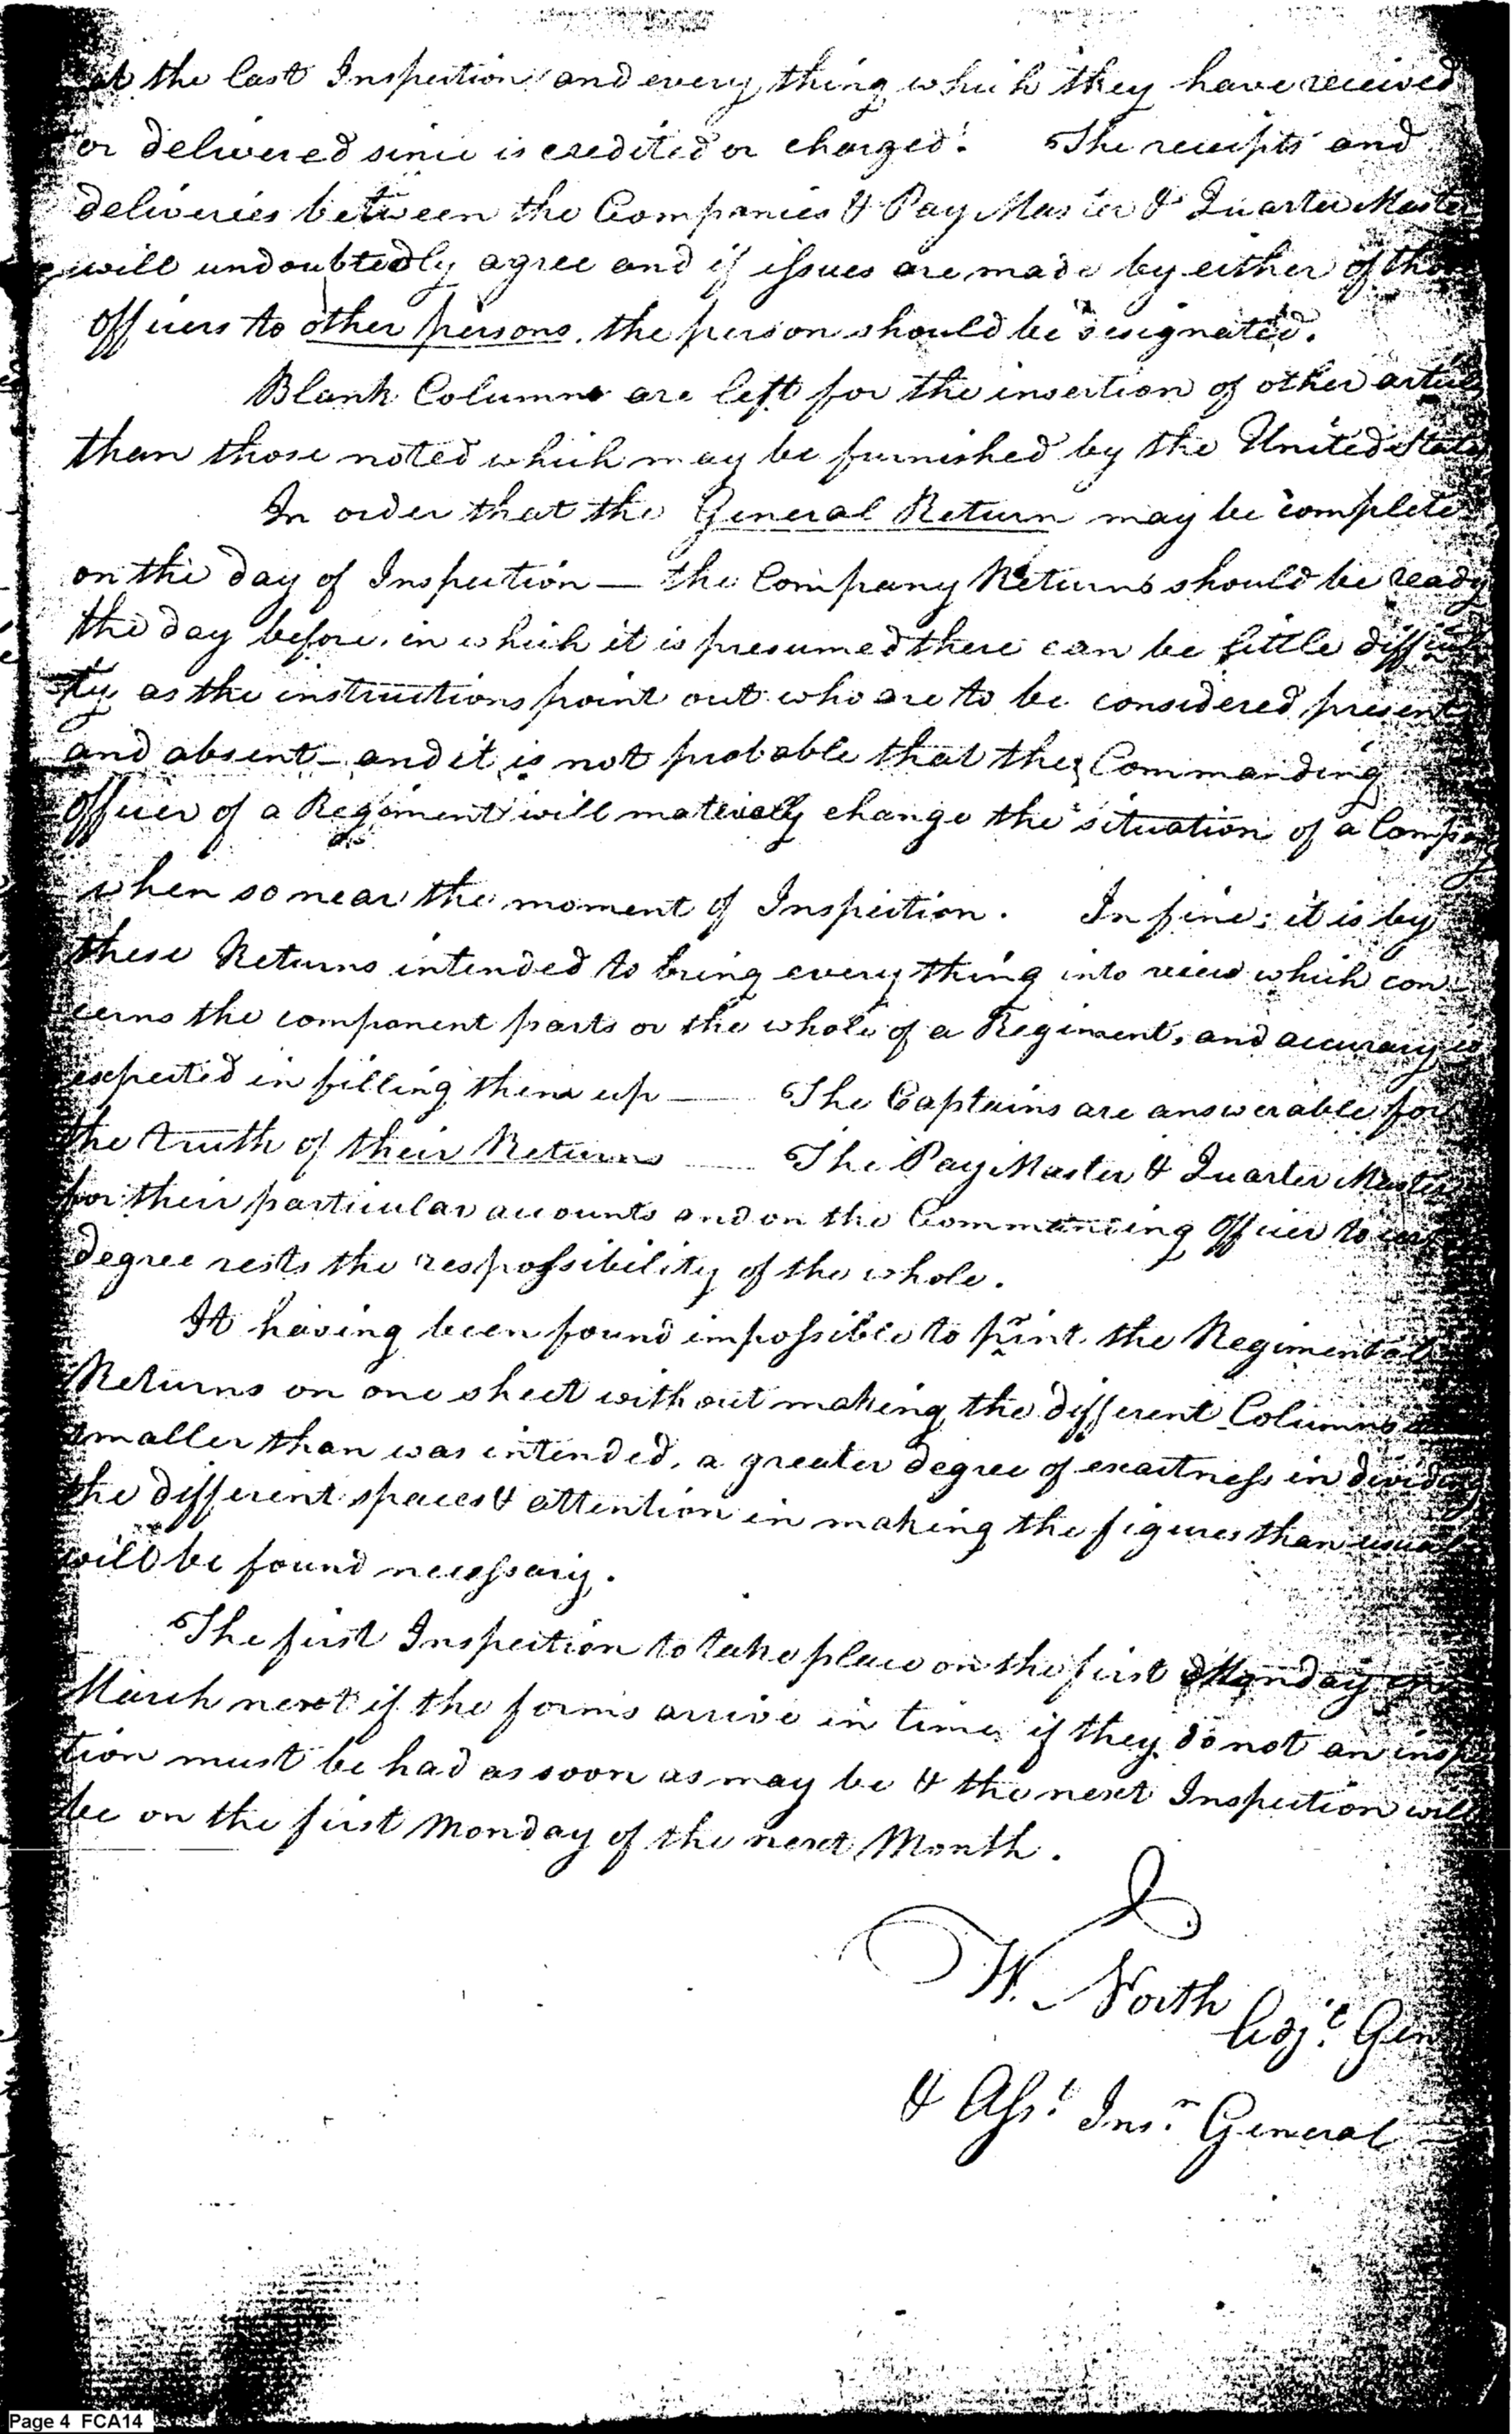 at the last Inspection and every thing which they have received
or delivered since is credited or charged. The receipts and
deliveries between the Companies & Pay Master & Quarter Master
will undoubtedly agree and if issues are made by either of
officers to other persons, the person should be designated.
Blank Columns are left for the insertion of other
than those noted which may be furnished by the United
In order that the General Return may be complete
on the day of Inspection — the Company Returns should be ready
the day before, in which it is presumed there can be little difficul
ty as the instructions point out who are to be considered present
and absent — and it is not probable that the Commanding
officer of a Regiment will materially change the situation of a
when so near the moment of Inspection. In fine; it is by
these Returns intended to bring every thing into view which con-
cerns the component parts or the whole of a Regiment, and accuracy is
expected in filling them up — The Captains are answerable for
the truth of their Returns — The Pay Master & Quarter Master
for their particular accounts and on the Commanding officer to
degree rests the responsibility of the whole.
It having been found impossible to print the Regimental
Returns on one sheet without making the different Columns
smaller than was intended, a greater degree of exactness in
the different spaces & attention in making the figures than usual
will be found necessary.
The first Inspection to take place on the first Monday
March next if the forms arrive in time, if they do not an inspec
tion must be had as soon as may be & the next Inspection will
be on the first Monday of the next Month.
W. North
Adjt. Gen
& Asst. Insr. General
Page 4 FCA14